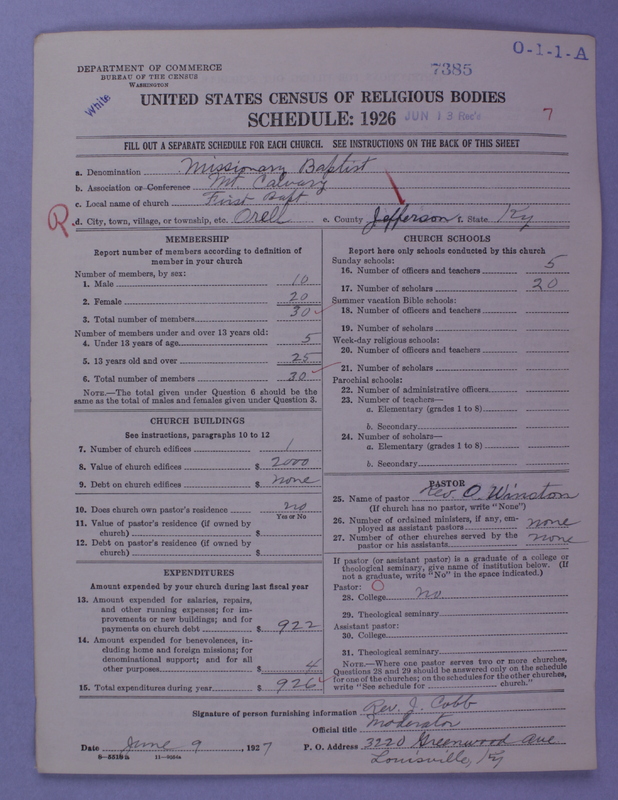 O-1-1-A
DEPARTMENT OF COMMERCE
BUREAU OF THE CENSUS
WASHINGTON
7385
White
UNITED STATES CENSUS OF RELIGIOUS BODIES
SCHEDULE: 1926
JUN 13 Rec'd
7
FILL OUT A SEPARATE SCHEDULE FOR EACH CHURCH. SEE INSTRUCTIONS ON THE BACK OF THIS SHEET
a. Denomination Missionary Baptist
b. Association or Conference Mt. Calvary
c. Local name of church First Bapt
R
d. City, town, village, or township, etc. Orell e. County Jefferson f. State Ky
MEMBERSHIP
Report number of members according to definition of
member in your church
Number of members, by sex:
1. Male 10
2. Female 20
3. Total number of members 30
Number of members under and over 13 years old:
4. Under 13 years of age 5
5. 13 years old and over 25
6. Total number of members 30
NOTE.—The total given under Question 6 should be the
same as the total of males and females given under Question 3.
CHURCH BUILDINGS
See instructions, paragraphs 10 to 12
7. Number of church edifices 1
8. Value of church edifices $ 2000
9. Debt on church edifices $ none
10. Does church own pastor's residence no
Yes or No
11. Value of pastor's residence (if owned by
church) $
12. Debt on pastor's residence (if owned by
church) $
EXPENDITURES
Amount expended by your church during last fiscal year
13. Amount expended for salaries, repairs,
and other running expenses; for im-
provements or new buildings; and for
payments on church debt $ 922
14. Amount expended for benevolences, in-
cluding home and foreign missions; for
denominational support; and for all
other purposes $ 4
15. Total expenditures during year $ 926
CHURCH SCHOOLS
Report here only schools conducted by this church
Sunday schools:
16. Number of officers and teachers 5
17. Number of scholars 20
Summer vacation Bible schools:
18. Number of officers and teachers
19. Number of scholars
Week-day religious schools:
20. Number of officers and teachers
21. Number of scholars
Parochial schools:
22. Number of administrative officers
23. Number of teachers—
a. Elementary (grades 1 to 8)
b. Secondary
24. Number of scholars—
a. Elementary (grades 1 to 8)
b. Secondary
PASTOR
25. Name of pastor Rev. O. Winston
(If church has no pastor, write "None")
26. Number of ordained ministers, if any, em-
ployed as assistant pastors none
27. Number of other churches served by the
pastor or his assistants none
If pastor (or assistant pastor) is a graduate of a college or
theological seminary, give name of institution below. (If
not a graduate, write "No" in the space indicated.)
Pastor:
28. College no
29. Theological seminary
Assistant pastor:
30. College
31. Theological seminary
NOTE.—Where one pastor serves two or more churches,
Questions 28 and 29 should be answered only on the schedule
for one of the churches; on the schedules for the other churches,
write "See schedule for church."
Signature of person furnishing information Rev. J. Cobb
Official title Moderator
Date June 9, 1927 P. O. Address 3220 Greenwood Ave
Louisville, Ky